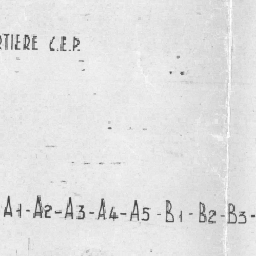 RTIERE C.E.P.
A1-A2-A3-A4-A5-B1-B2-B3-